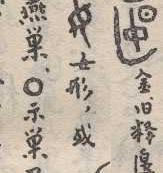 金旧释
女形，或
燕巢、〇示巢